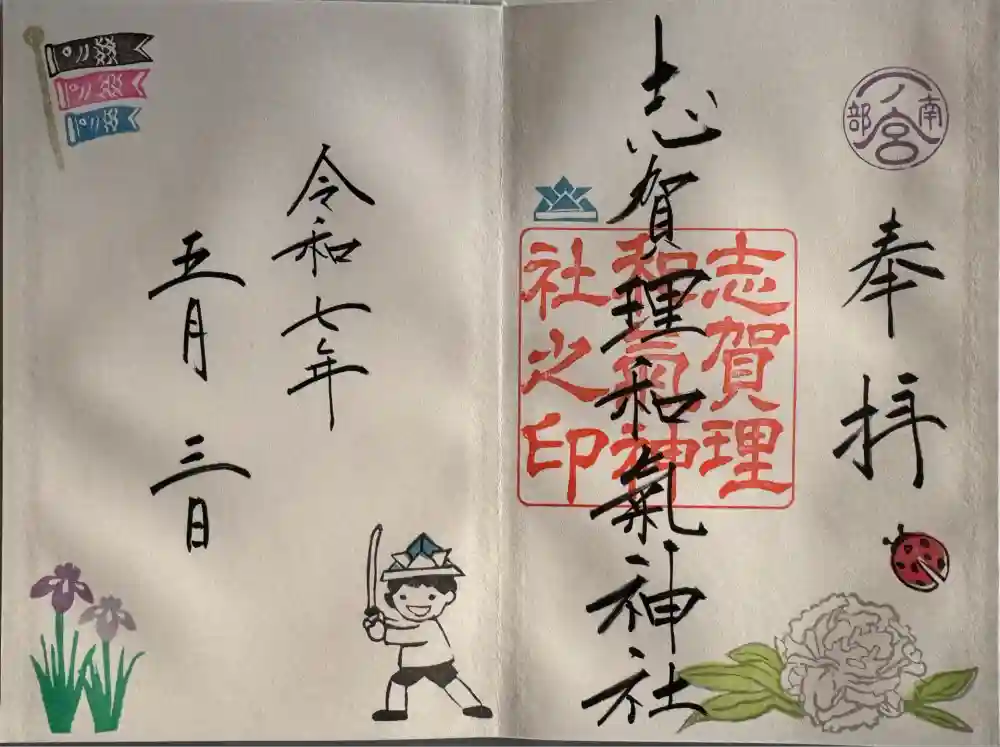 南部
一ノ宮
奉拝
志賀理和氣神社
志賀理
和氣神
社之印
令和七年
五月三日